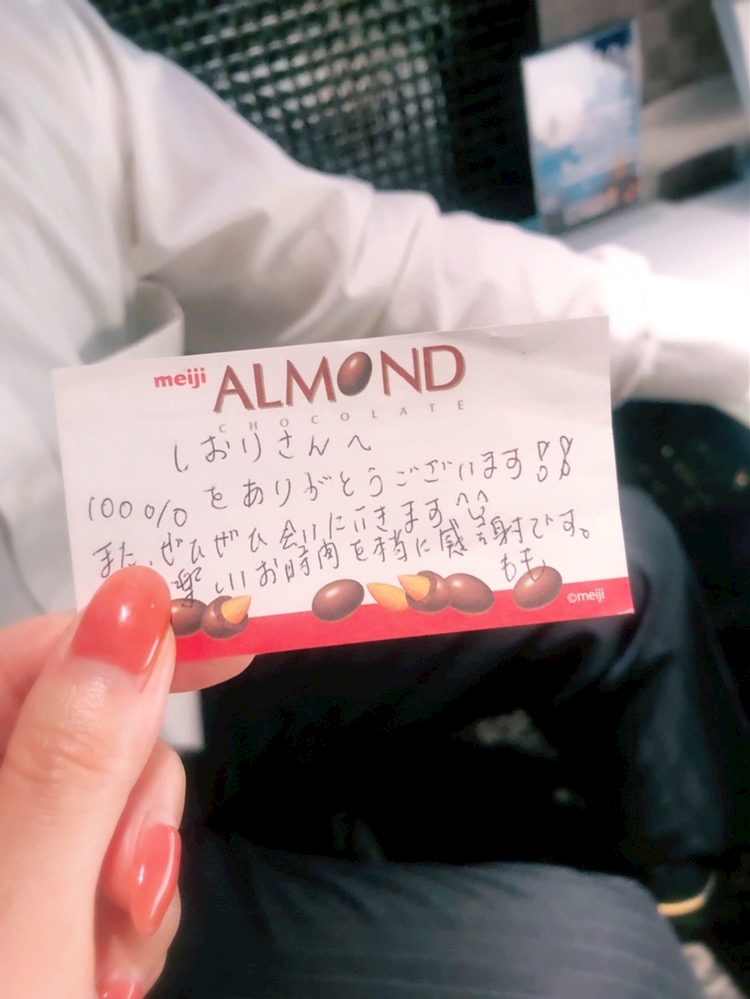 meiji ALMOND
CHOCOLATE
しおりさんへ
100%をありがとうございます!!
また、ぜひぜひ会いにいきます^^
楽しいお時間を本当に感謝です。
もも
©meiji